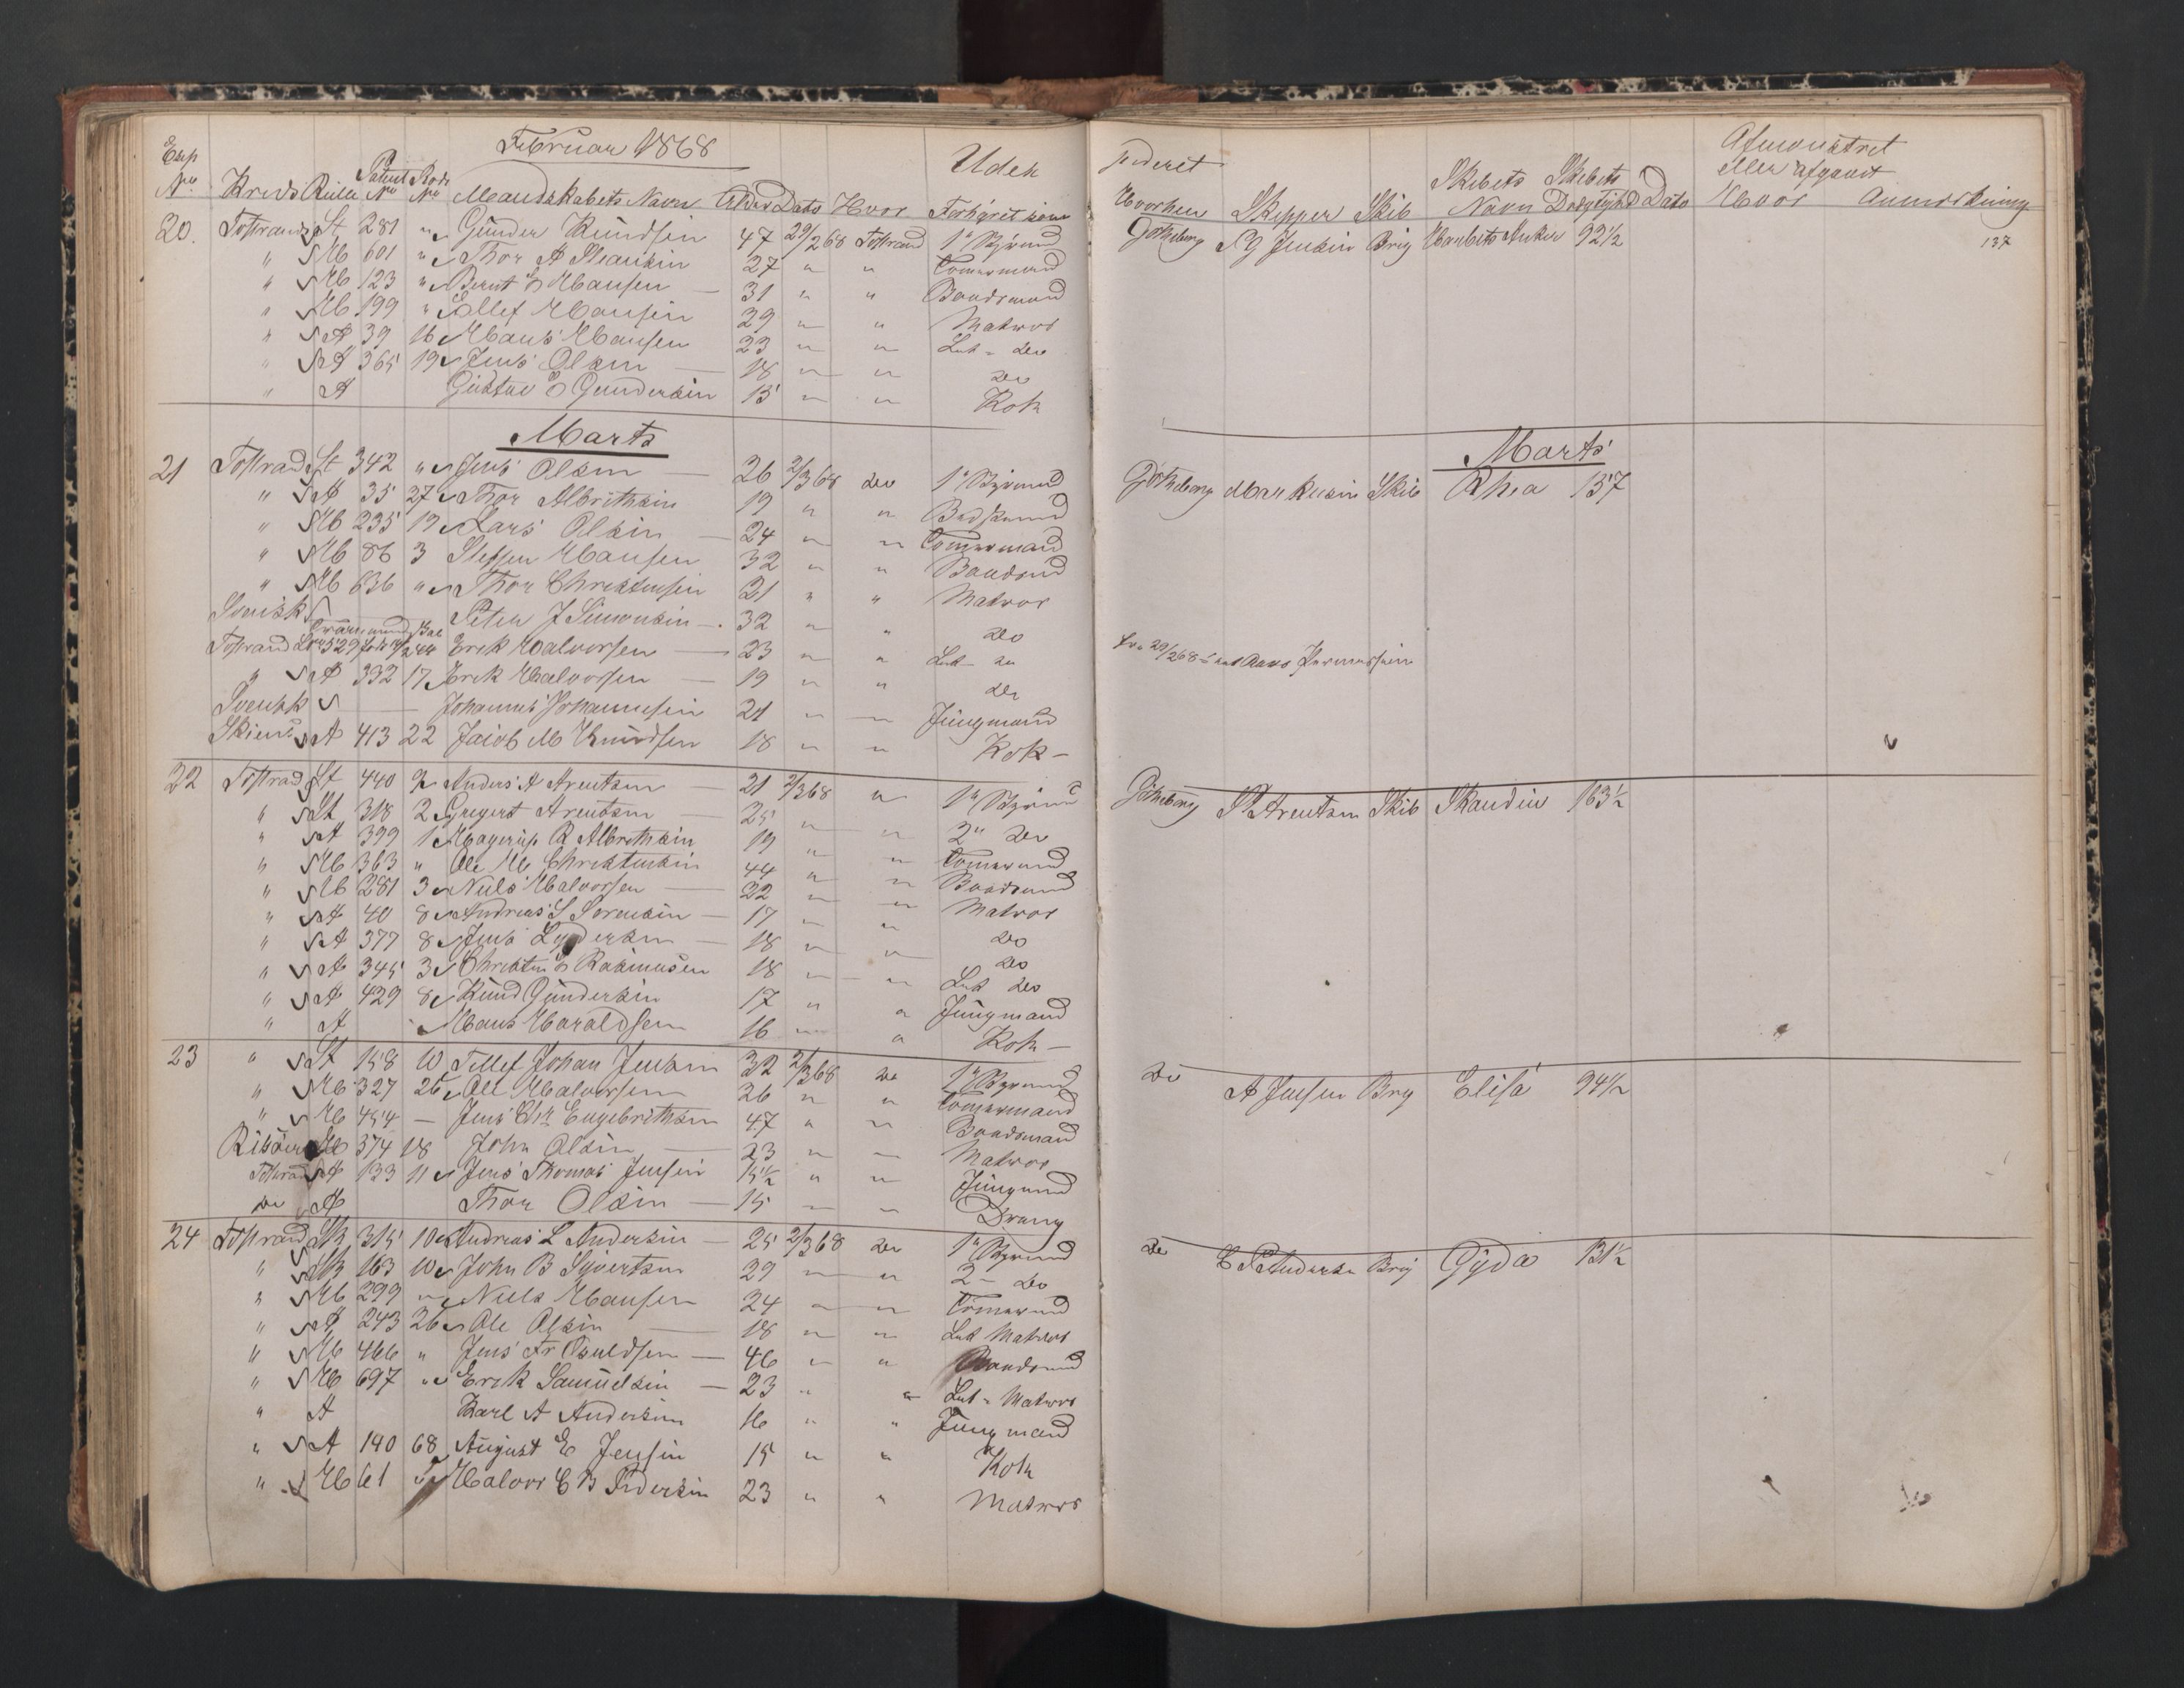 Februar 1868
Udek
Exp No. Kreds Rulle Patent No Rode No Mandskabets Navn Alder Dato Hvor Forhyret som
20. Tostrand St 281 " Gunder Knudsen 47 29/2 68 Tostrand 1e Styrmd
" Hb 601 " Thor A 27 " " Tømermand
" Hb 123 " Bernt E Hansen — 31 " " Baadsmand
" Hb 199 " Ellef Hansen 29 " " Matros
" A 39 16 Hans Hansen 23 " " Let " do
" A 365 19 Jens Olsen — 18 " " do
" A Gustav E Gundersen 15 " " Kok
Marts
21 Tostrand St 342 " Jens Olsen — 26 2/3 68 do 1e Styrmd
" A 35 27 Thor Albrethsen 19 " "
" Hb 235 19 Lars Olsen — 24 " " Tømermand
" Hb 86 3 Steffen Hansen 32 " " Baadsmd
" Hb 636 " Thor Christensen 21 " " Matros
Svensk Peter J Simonsen — 32 " " do
Tostrand 529 244 Erik Halvorsen — 23 " " Let do
" A 332 17 Erik Halvorsen — 19 " " do
Svensk — Johannes Johannesen 21 " " Jüngmand
Skien A 413 22 Jacob M Knudsen 18 " " Kok —
22 Tostrad St 440 2 Anders A Arentsen — 21 2/3 68 " 1e Styrmd
" St 318 2 Gregert Arentsen — 25 " " 2e do
" A 399 1 Hagerup R Albrethsen 19 " " Tømermd
" Hb 363 " Ole M Christensen 44 " " Baadsmd
" Hb 281 3 Niels Halvorsen — 22 " " Matros
" A 40 8 Andreas S Sørensen — 17 " " do
" A 377 8 Jens Lydersen — 18 " " do
" A 345 3 Christen E Rasmusen 18 " " Let do
" A 429 8 Knud Gundersen 17 " " Jüngmand
" A Hans Haraldsen 16 " " Kok —
23 " St 158 10 Tellef Johan Jensen 32 2/3 68 do 1e Styrmd
" Hb 327 26 Ole Halvorsen 26 " " Tømermand
" Hb 454 — Jens Chr Engebrethsen 47 " " Baadsmand
Risøer Hb 374 18 John Olsen — 23 " " Matros
Tostrand A 133 11 Jens Thomas Jensen 15½ " " Jüngmd
do A Thor Olsen — 15 " " Dreng
24 Tostrand St 315 10 Andreas L Andersen — 25 2/3 68 do 1e Styrmd
" St 163 10 John B Syvertsen 29 " " 2 — do
" Hb 299 " Niels Hansen 24 " " Tømermd
" A 243 26 Ole Olsen — 18 " " Let Matros
" Hb 466 " Jens Fr Osuldsen — 46 " " Baadsmd
" Hb 697 " Erik Samuelsen — 23 " " Let " Matros
" A Karl A Andersen 16 " " Jüngmand
" A 140 68 August E Jensen 15 " " Kok
" Hb 61 5 Halvor C B Pedersen 23 " " Matros
Afmønstret eller afgaaet
Hvorhen Skipper Skib Skibets Navn Skibets Drægtighd Dato Hvor Anmærkning
Gøtheborg S G Jensen Brig Haabets Anker 92½ 137
Marts
Gøtheborg Markusen Skib Rhea 157
29/2 68
Gøtheborg P Arentsen Skib Skandia 163½
do A Jensen Brig Elisa 94½
do C P Andersen Brig Gyda 131½